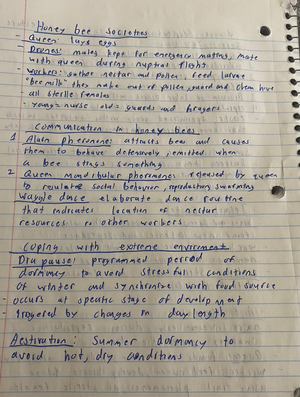 Honey bee societies
- Queen lays eggs
- Drones: males kept for emergency matting, mate
with queen during nuptial flight
- Workers: gather nectar and pollen, feed larvae
"bee milk" they make out of pollen, guard and clean hive
all sterile females
- young = nurse old = guards and foragers
Communication in honey bees
1 Alarm pheromone: attracts bees and causes
them to behave defensively, emitted when
a bee stings something
2 Queen mandibular pheromones released by queen
to regulate social behavior, reproduction, swarming
Waggle dance elaborate dance routine
that indicates location of nectar
resources to other workers
Coping with extreme environment
Diapause: programmed period of
dormancy to avoid stressful conditions
of winter and synchronize with food source
- occurs at specific stage of development
- triggered by changes in day length
Aestivation: Summer dormancy to
avoid hot, dry conditions